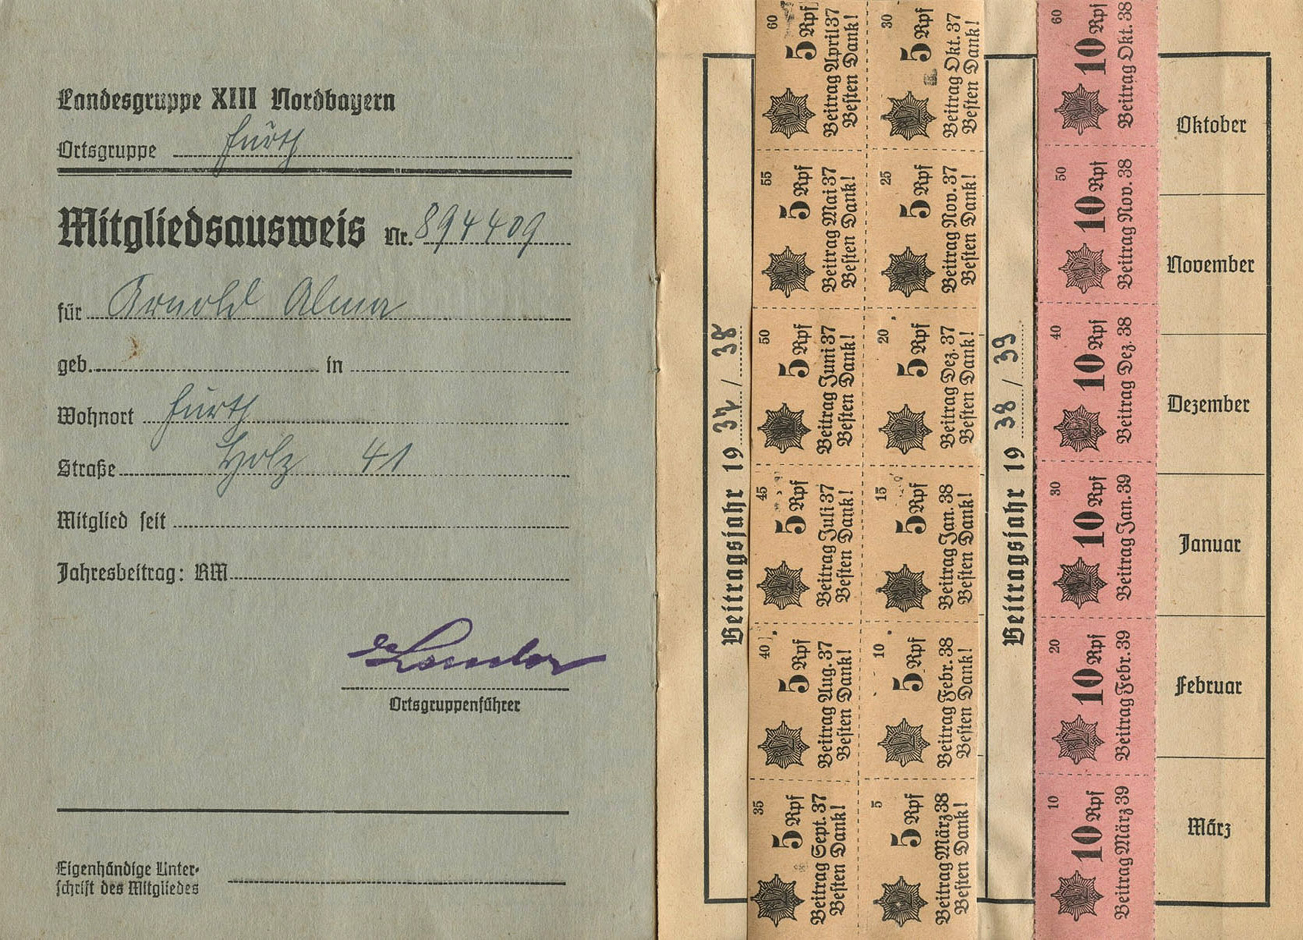 Landesgruppe XIII Nordbayern
Ortsgruppe Fürth
Mitgliedsausweis Nr. 894409
für Arnold Alma
geb. in
Wohnort Fürth
Straße Holz 41
Mitglied seit
Jahresbeitrag: RM
Ortsgruppenführer
Eigenhändige Unter-
schrift des Mitgliedes
Beitragsjahr 1937/38
60
5 Rpf
Beitrag April 37
Besten Dank!
55
5 Rpf
Beitrag Mai 37
Besten Dank!
50
5 Rpf
Beitrag Juni 37
Besten Dank!
45
5 Rpf
Beitrag Juli 37
Besten Dank!
40
5 Rpf
Beitrag Aug. 37
Besten Dank!
35
5 Rpf
Beitrag Sept. 37
Besten Dank!
30
5 Rpf
Beitrag Okt. 37
Besten Dank!
25
5 Rpf
Beitrag Nov. 37
Besten Dank!
20
5 Rpf
Beitrag Dez. 37
Besten Dank!
15
5 Rpf
Beitrag Jan. 38
Besten Dank!
10
5 Rpf
Beitrag Febr. 38
Besten Dank!
5
5 Rpf
Beitrag März 38
Besten Dank!
Beitragsjahr 1938/39
60
10 Rpf
Beitrag Okt. 38
50
10 Rpf
Beitrag Nov. 38
40
10 Rpf
Beitrag Dez. 38
30
10 Rpf
Beitrag Jan. 39
20
10 Rpf
Beitrag Febr. 39
10
10 Rpf
Beitrag März 39
Oktober
November
Dezember
Januar
Februar
März